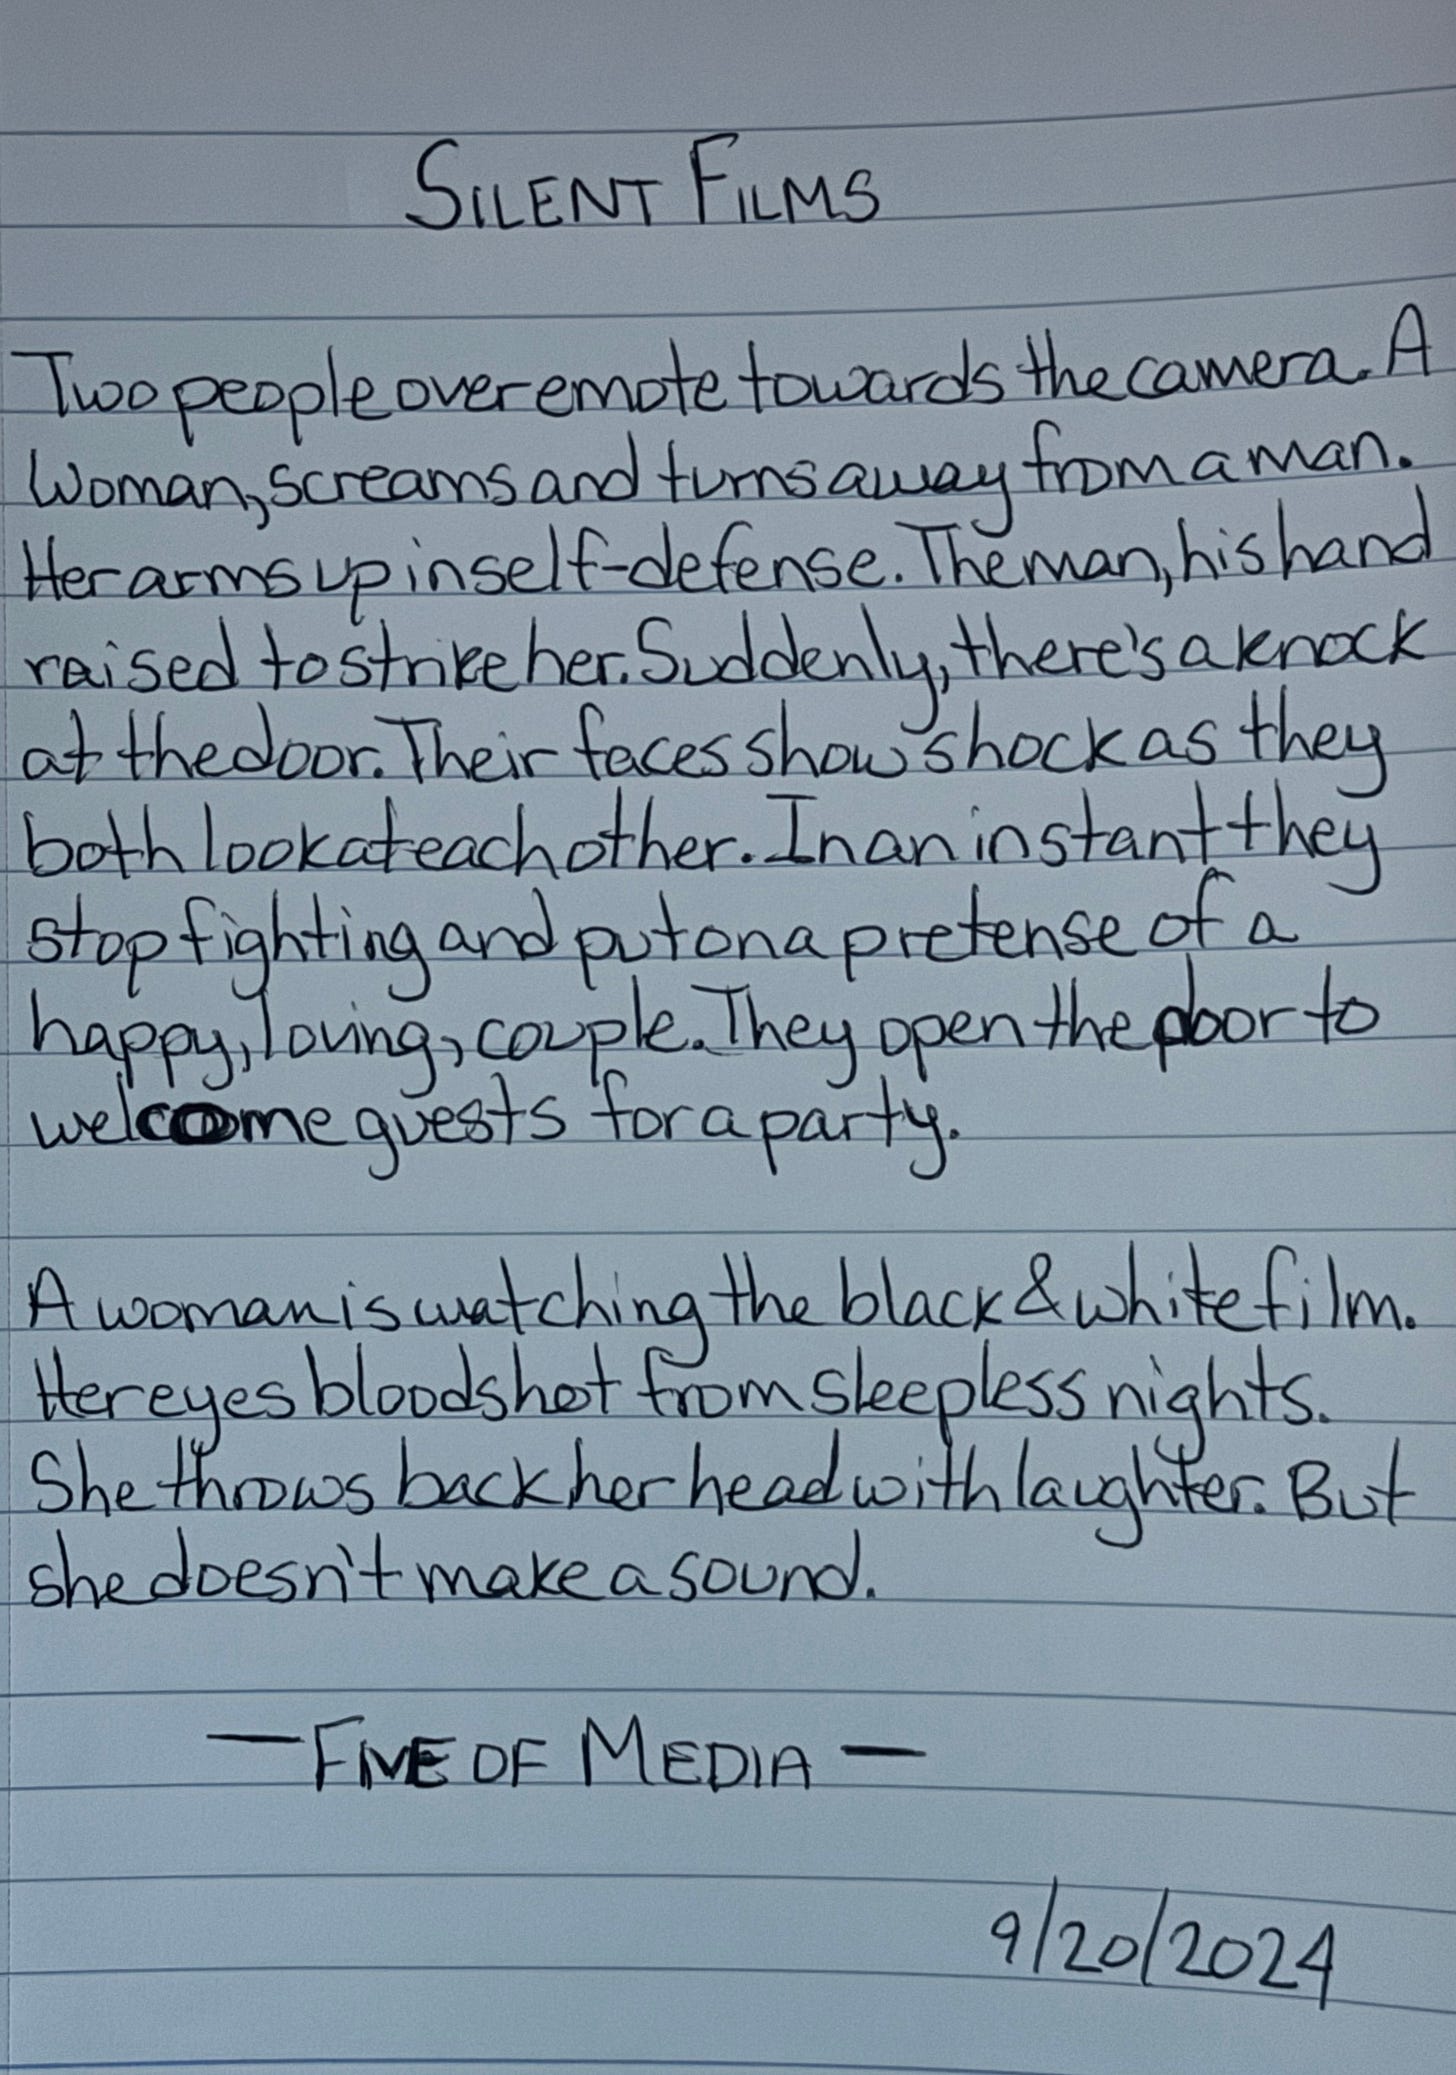 SILENT FILMS
Two people overemote towards the camera. A
Woman, screams and turns away from a man.
Her arms up in self-defense. The man, his hand
raised to strike her. Suddenly, there's a knock
at the door. Their faces show shock as they
both look at each other. In an instant they
stop fighting and put on a pretense of a
happy, loving, couple. They open the door to
welcome guests for a party.
A woman is watching the black & white film.
Her eyes bloodshot from sleepless nights.
She throws back her head with laughter. But
she doesn't make a sound.
— FIVE OF MEDIA —
9/20/2024